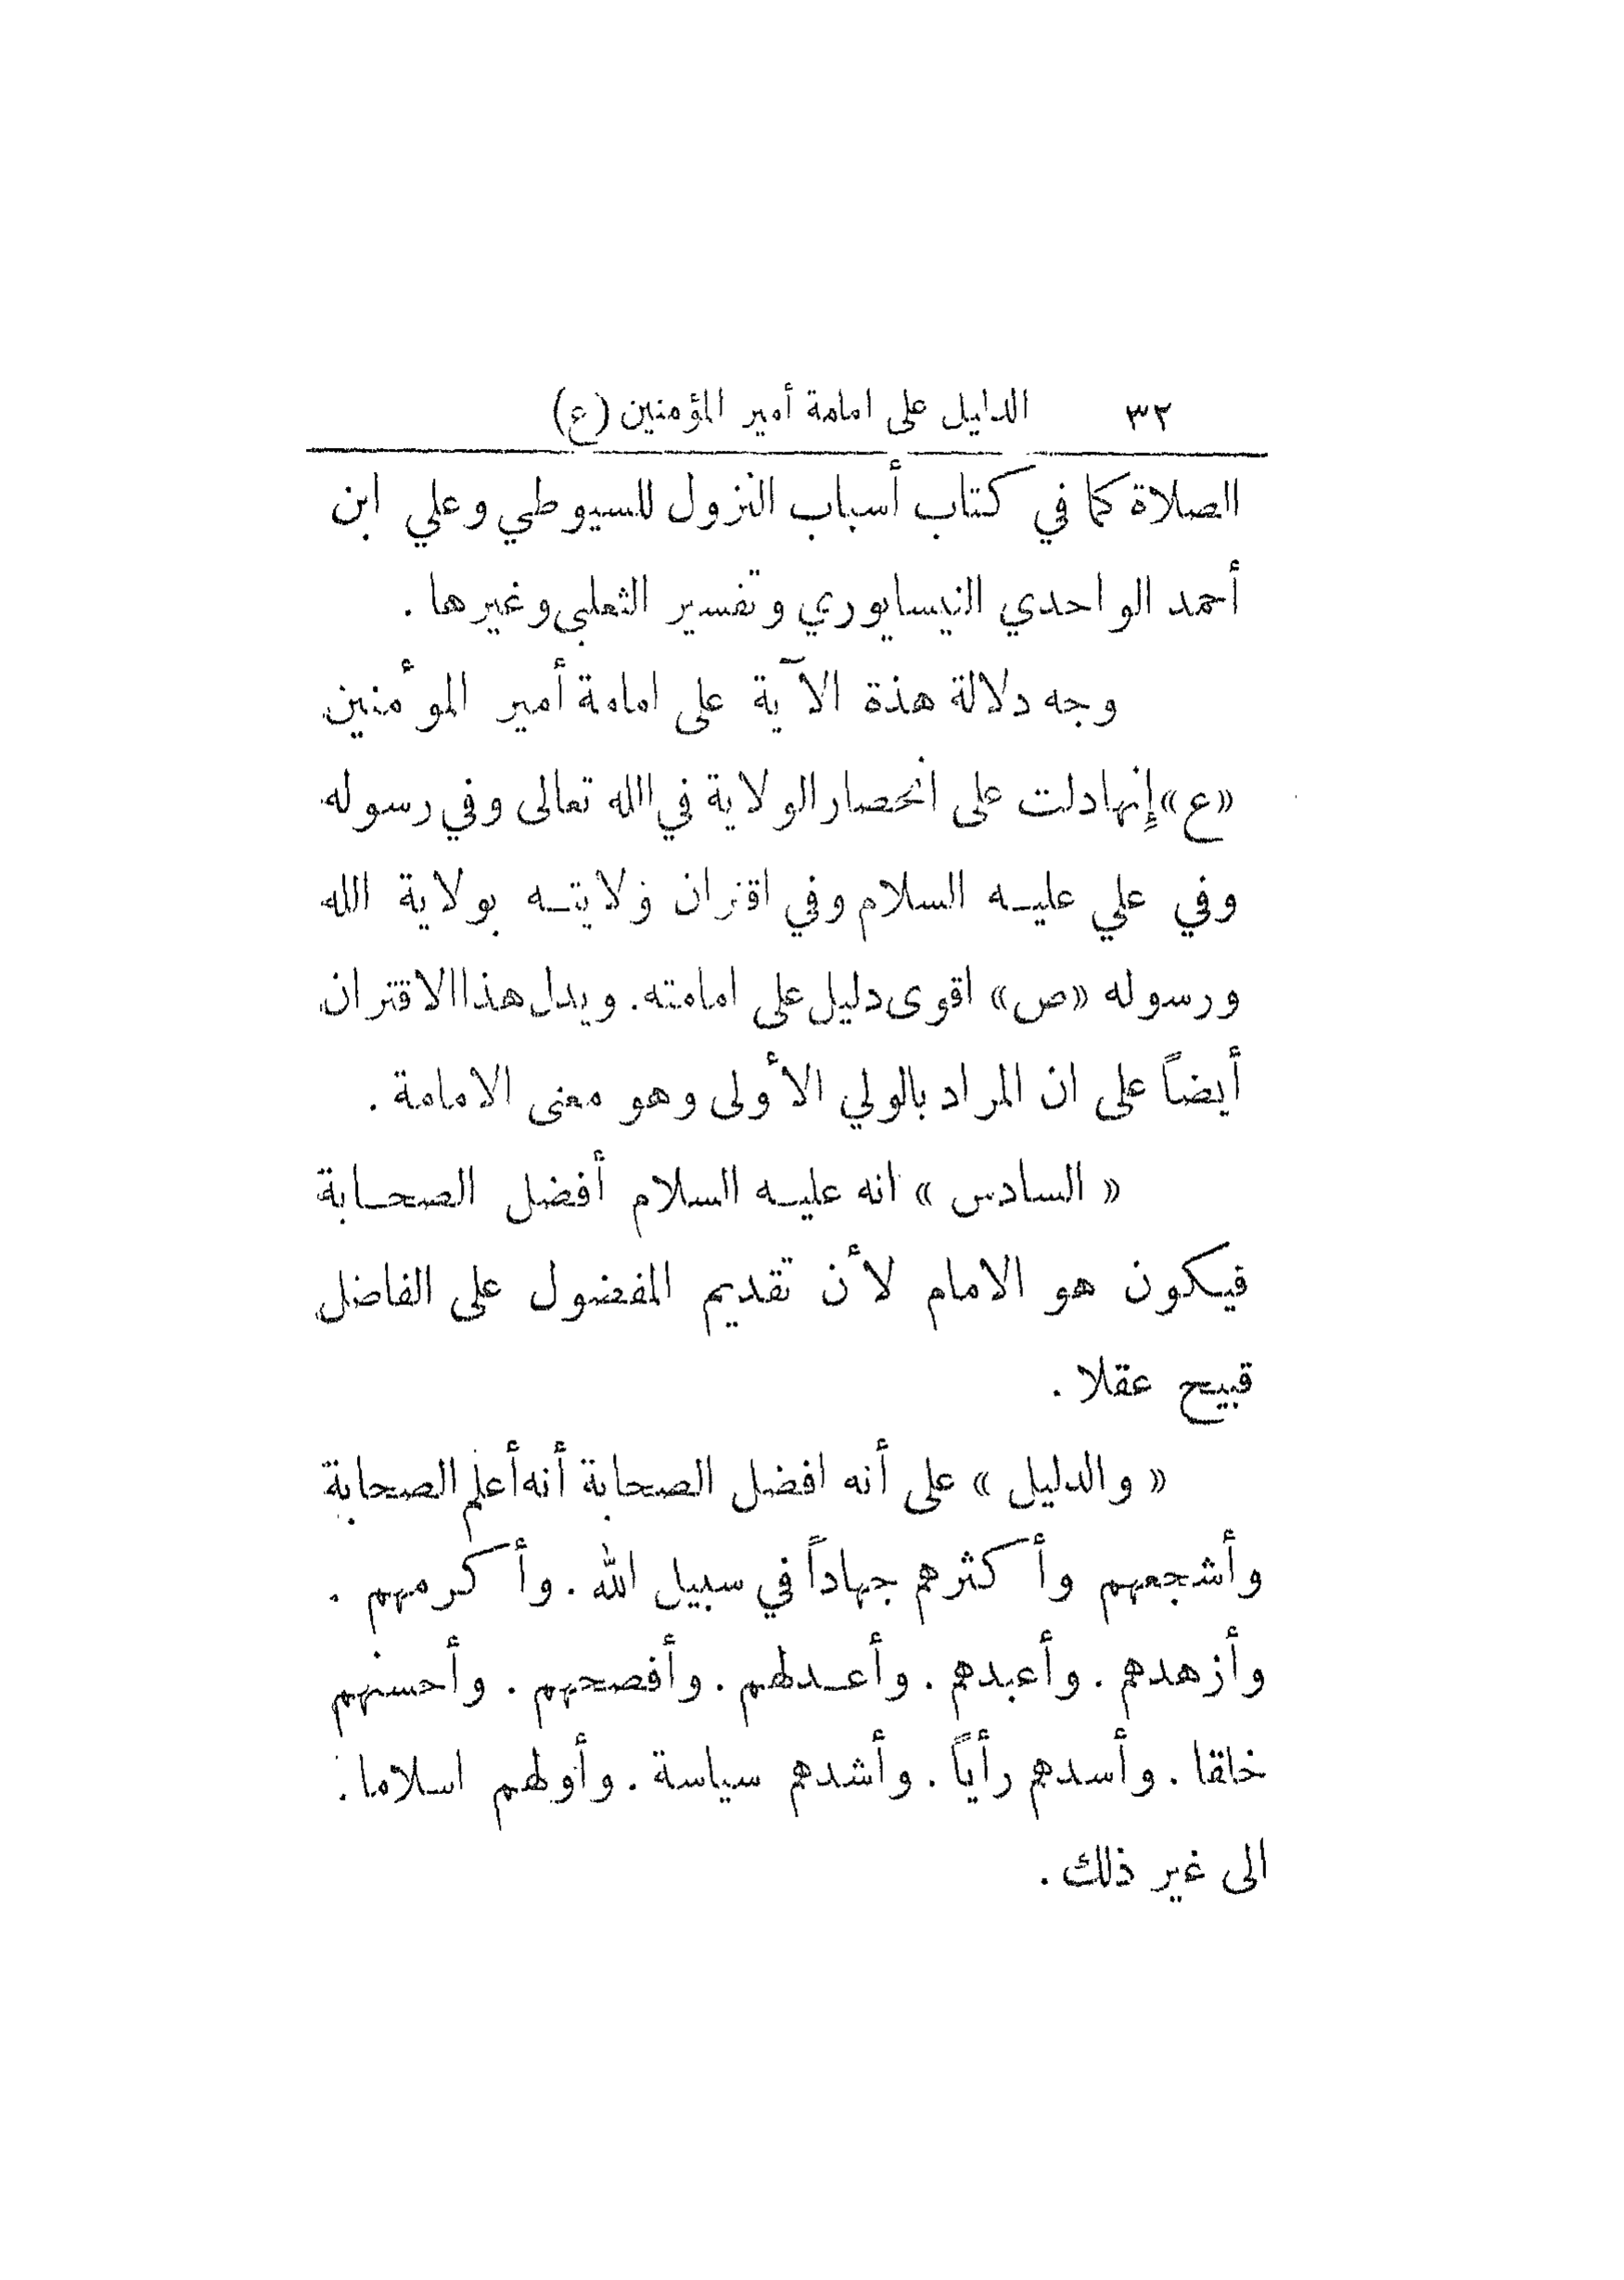 ٣٢ الدليل على امامة أمير المؤمنين (ع)
الصلاة كما في كتاب أسباب النزول للسيوطي وعلي ابن
أحمد الواحدي النيسابوري وتفسير الثعلبي وغيرها .
وجه دلالة هذة الآية على امامة أمير المؤمنين
«ع» إنها دلت على انحصار الولاية في الله تعالى وفي رسوله
وفي علي عليه السلام وفي اقتران ولايته بولاية الله
ورسوله «ص» اقوى دليل على امامته. ويدل هذا الاقتران
أيضاً على ان المراد بالولي الأولى وهو معنى الامامة .
« السادس » انه عليه السلام أفضل الصحابة
فيكون هو الامام لأن تقديم المفضول على الفاضل
قبيح عقلا .
« والدليل » على أنه افضل الصحابة أنه أعلم الصحابة
وأشجعهم وأكثرهم جهاداً في سبيل الله . وأكرمهم .
وأزهدهم . وأعبدهم . وأعدلهم . وأفصحهم . وأحسنهم
خلقا . وأسدهم رأياً . وأشدهم سياسة . وأولهم اسلاما .
الى غير ذلك .